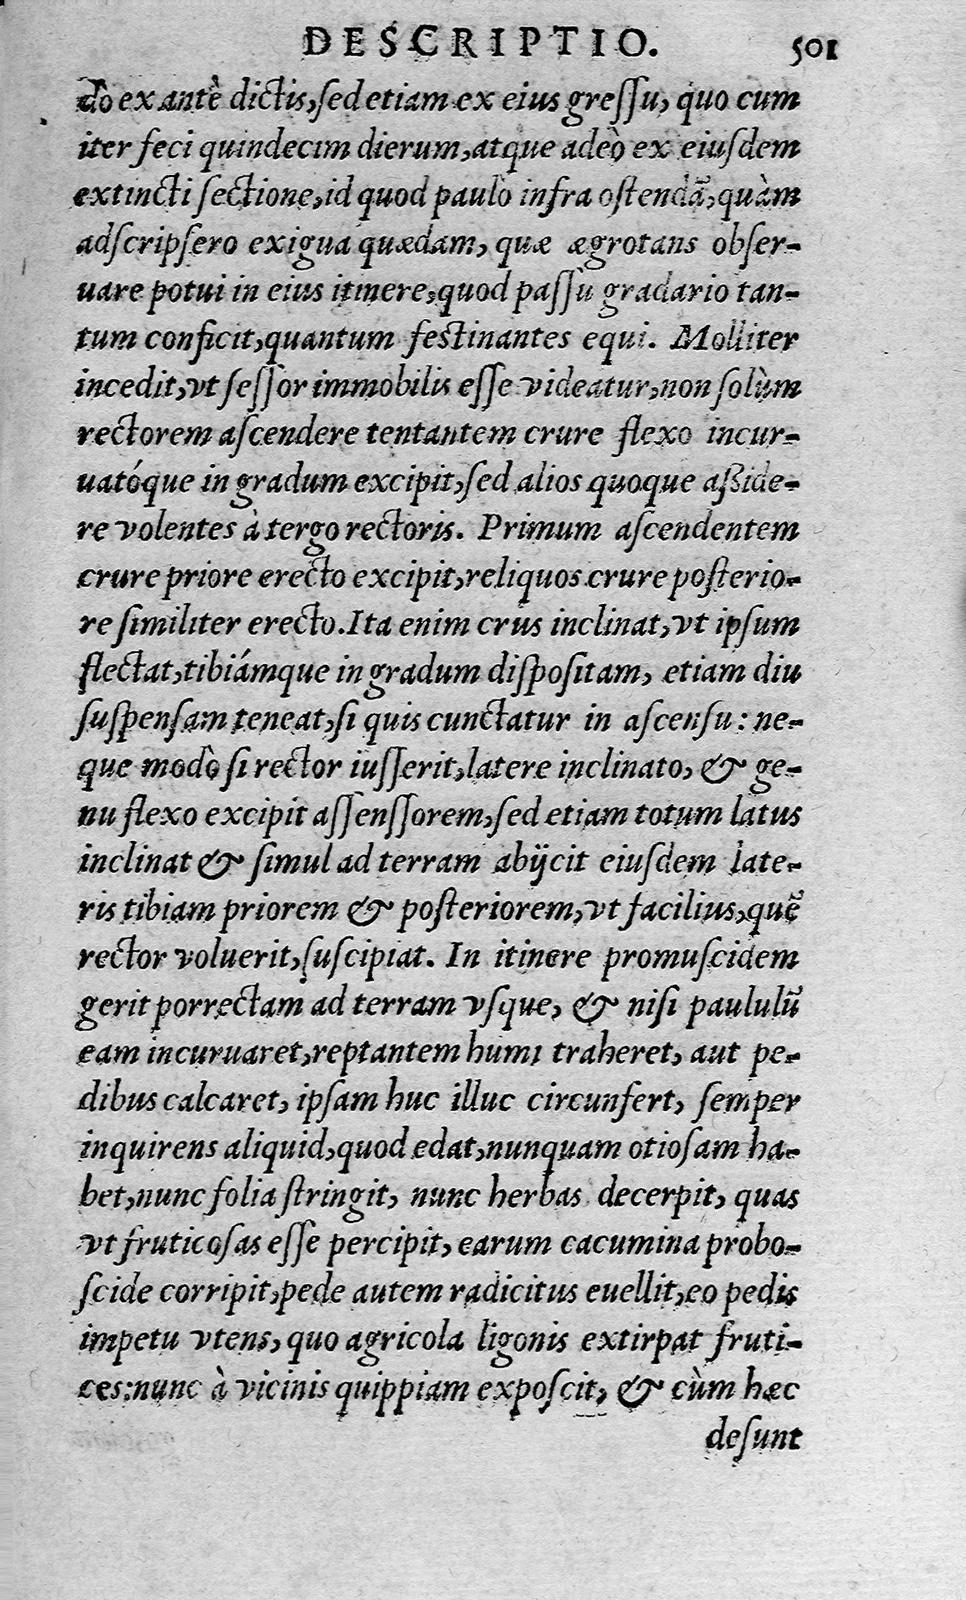 DESCRIPTIO. 501
do ex antè dictis, sed etiam ex eius gressu, quo cum
iter feci quindecim dierum, atque adeò ex eiusdem
extincti sectione, id quod paulò infra ostendā, quàm
adscripsero exigua quædam, quæ ægrotans obser-
uare potui in eius itinere, quod passu gradario tan-
tum conficit, quantum festinantes equi. Molliter
incedit, vt sessor immobilis esse videatur, non solùm
rectorem ascendere tentantem crure flexo incur-
uatóque in gradum excipit, sed alios quoque asside-
re volentes à tergo rectoris. Primum ascendentem
crure priore erecto excipit, reliquos crure posterio-
re similiter erecto. Ita enim crus inclinat, vt ipsum
flectat, tibiámque in gradum dispositam, etiam diu
suspensam teneat, si quis cunctatur in ascensu: ne-
que modò si rector iusserit, latere inclinato, & ge-
nu flexo excipit assenssorem, sed etiam totum latus
inclinat & simul ad terram abijcit eiusdem late-
ris tibiam priorem & posteriorem, vt facilius, quē
rector voluerit, suscipiat. In itinere promuscidem
gerit porrectam ad terram vsque, & nisi paululū
eam incuruaret, reptantem humi traheret, aut pe-
dibus calcaret, ipsam huc illuc circunfert, semper
inquirens aliquid, quod edat, nunquam otiosam ha-
bet, nunc folia stringit, nunc herbas decerpit, quas
vt fruticosas esse percipit, earum cacumina probo-
scide corripit, pede autem radicitus euellit, eo pedis
impetu vtens, quo agricola ligonis extirpat fruti-
ces: nunc à vicinis quippiam exposcit, & cùm hæc
desunt